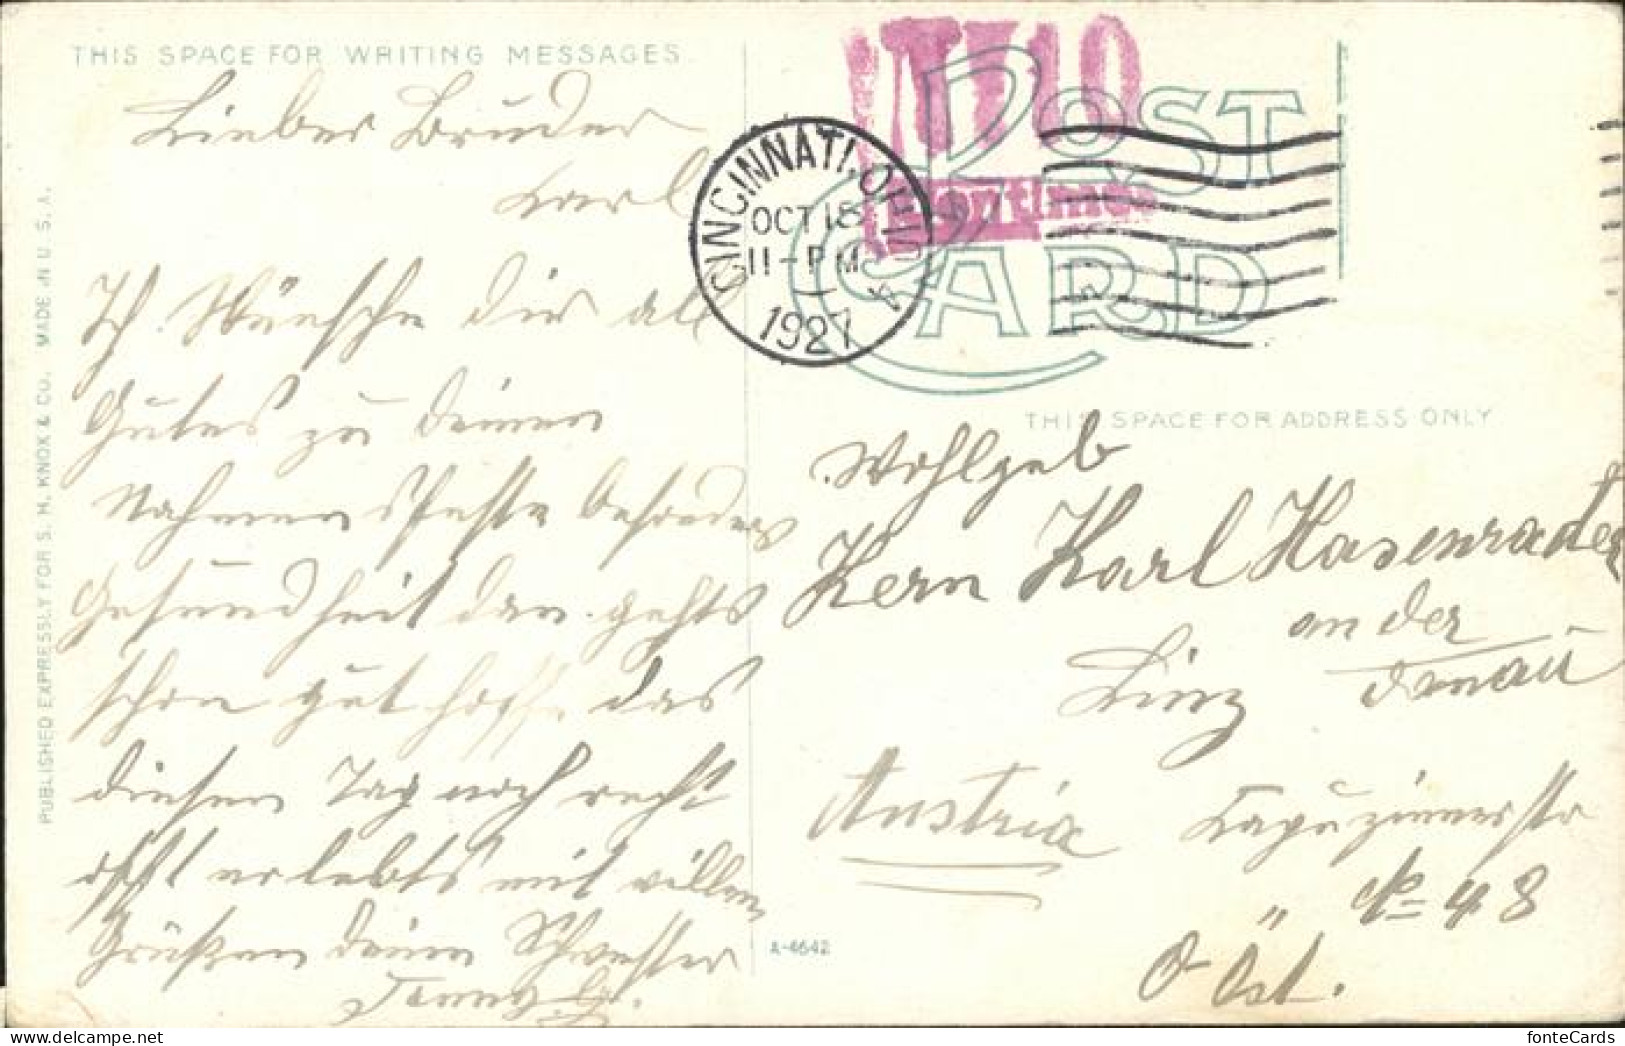 THIS SPACE FOR WRITING MESSAGES
Lieber Bruder
Karl
Ich Wünsche dir all
Gutes zu deinen
Nahmensfeste besonders
Gesundheit dan gehts
schon gut hoffe das
diesen Tag noch recht
offt erlebts mit villen
Grüßen deine Schwester
PUBLISHED EXPRESSLY FOR S. H. KNOX & CO. MADE IN U. S. A.
CINCINNATI, OHIO
OCT 18
11-PM
1927
A
T 10
Centimes
POST
CARD
THIS SPACE FOR ADDRESS ONLY
Wohlgeb
Hern Karl Hasenrader
an der
Linz Donau
Austria Kapuzinnerstr
No 48
O Öst.
A-4642
fonteCards